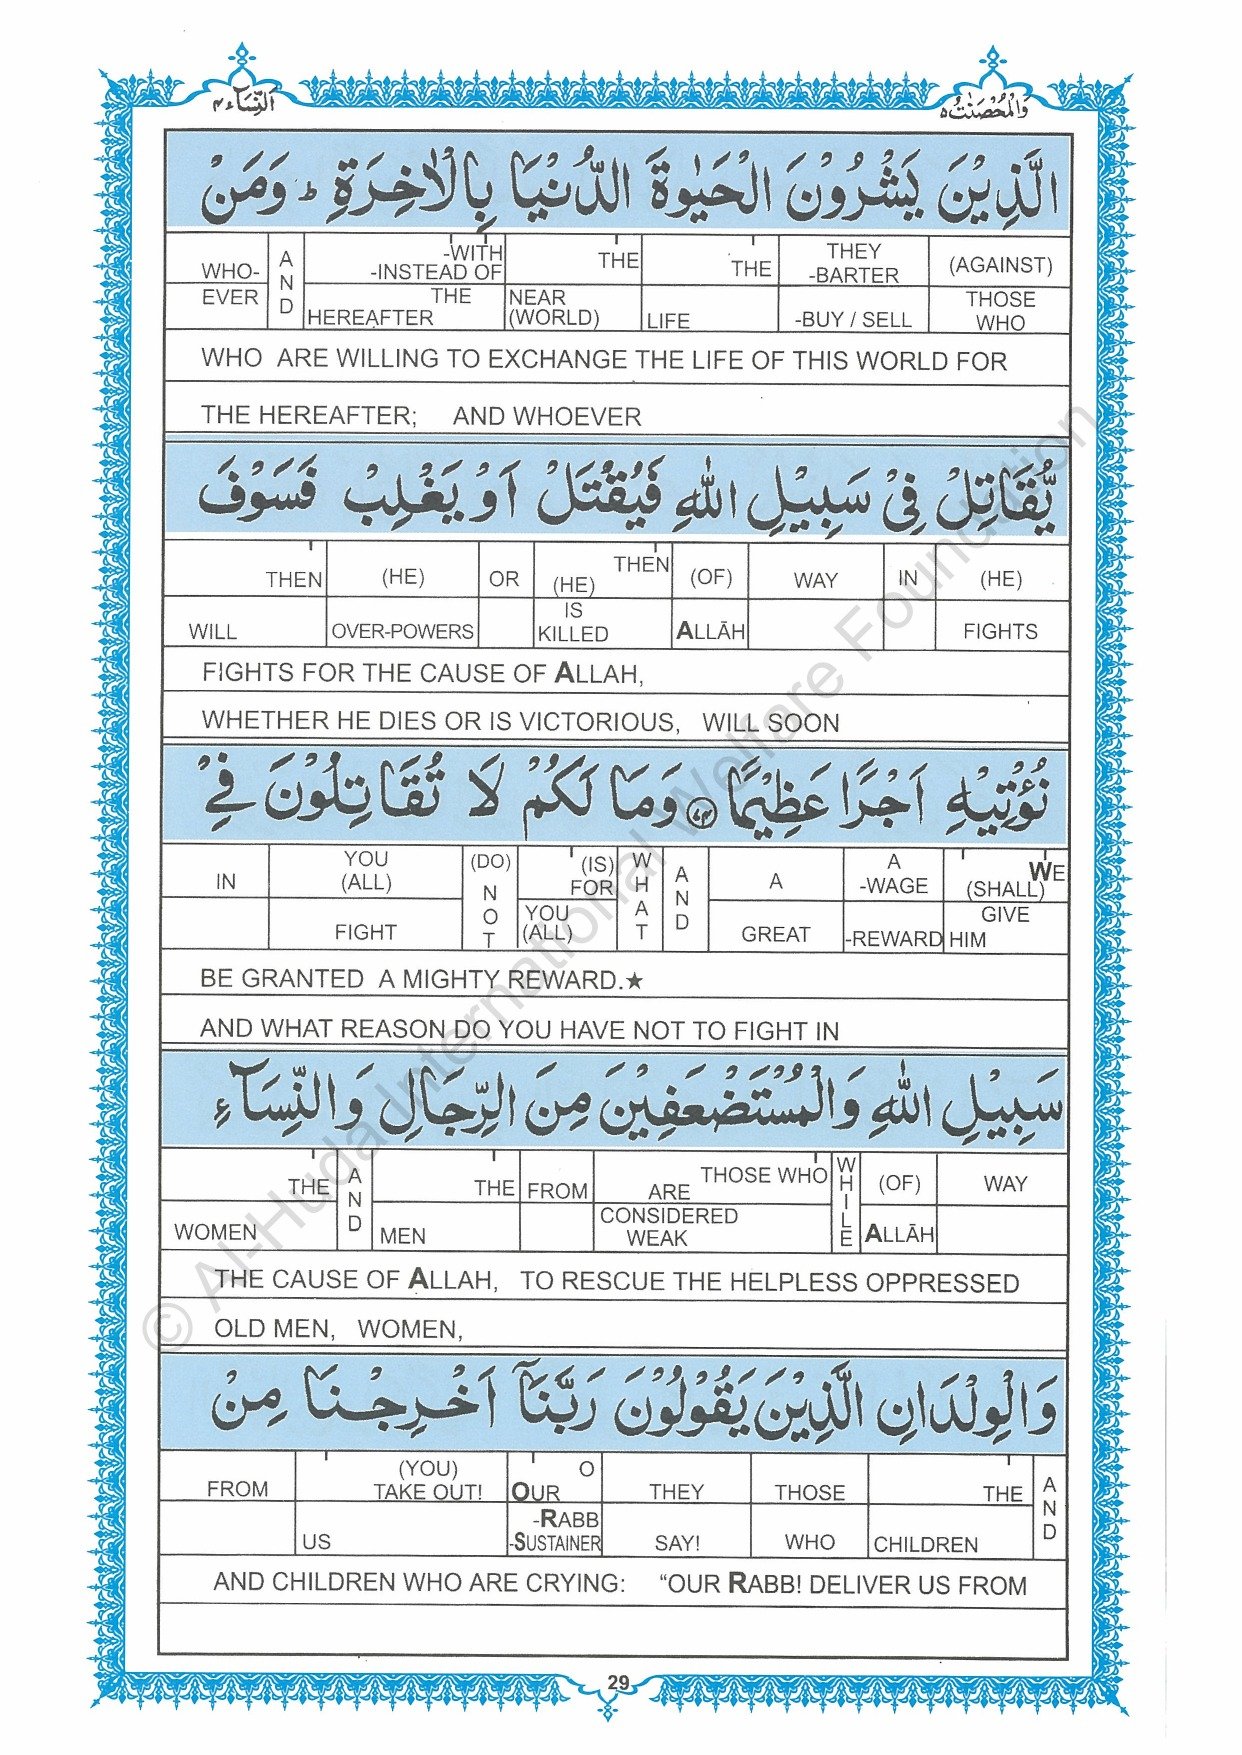 وَالْمُحْصَنٰتُ ۵
اَلنِّسَآء ۴
الَّذِيْنَ يَشْرُوْنَ الْحَيٰوةَ الدُّنْيَا بِالْاٰخِرَةِ ؕ وَمَنْ
WHO- AND -WITH -INSTEAD OF THE THE THEY -BARTER (AGAINST)
EVER THE HEREAFTER NEAR (WORLD) LIFE -BUY / SELL THOSE WHO
WHO ARE WILLING TO EXCHANGE THE LIFE OF THIS WORLD FOR
THE HEREAFTER; AND WHOEVER
يُّقَاتِلْ فِيْ سَبِيْلِ اللّٰهِ فَيُقْتَلْ اَوْ يَغْلِبْ فَسَوْفَ
THEN (HE) OR THEN (HE) (OF) WAY IN (HE)
WILL OVER-POWERS IS KILLED ALLĀH FIGHTS
FIGHTS FOR THE CAUSE OF ALLAH,
WHETHER HE DIES OR IS VICTORIOUS, WILL SOON
نُؤْتِيْهِ اَجْرًا عَظِيْمًا ۷۴ وَمَا لَكُمْ لَا تُقَاتِلُوْنَ فِيْ
IN YOU (ALL) (DO) NOT (IS) FOR WHAT AND A A -WAGE WE (SHALL)
FIGHT YOU (ALL) GREAT -REWARD GIVE HIM
BE GRANTED A MIGHTY REWARD.★
AND WHAT REASON DO YOU HAVE NOT TO FIGHT IN
سَبِيْلِ اللّٰهِ وَالْمُسْتَضْعَفِيْنَ مِنَ الرِّجَالِ وَالنِّسَآءِ
THE AND THE FROM THOSE WHO ARE WHILE (OF) WAY
WOMEN MEN CONSIDERED WEAK ALLĀH
THE CAUSE OF ALLAH, TO RESCUE THE HELPLESS OPPRESSED
OLD MEN, WOMEN,
وَالْوِلْدَانِ الَّذِيْنَ يَقُوْلُوْنَ رَبَّنَآ اَخْرِجْنَا مِنْ
FROM (YOU) TAKE OUT! O OUR THEY THOSE THE AND
US -RABB -SUSTAINER SAY! WHO CHILDREN
AND CHILDREN WHO ARE CRYING: “OUR RABB! DELIVER US FROM
29
© Al-Huda International Welfare Foundation